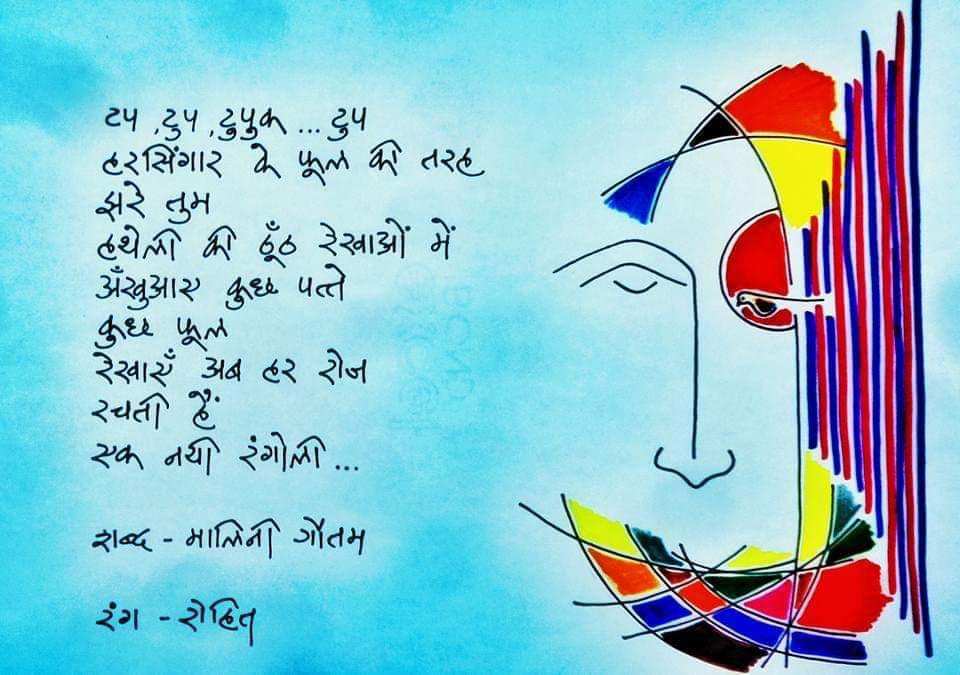 टप ,टुप ,टुपुक ... टुप
हरसिंगार के फूल की तरह
झरे तुम
हथेली की ठूँठ रेखाओं में
अँखुआए कुछ पत्ते
कुछ फूल
रेखाएँ अब हर रोज
रचती हैं
एक नयी रंगोली ...
शब्द - मालिनी गौतम
रंग - रोहित